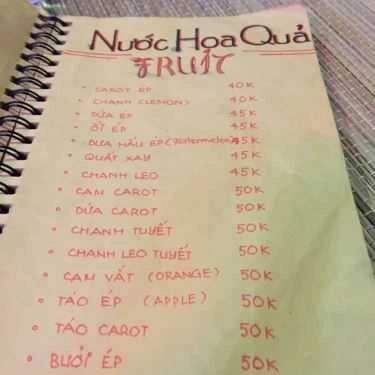 Nước Hoa Quả
FRUIT
CAROT ÉP 40K
CHANH (LEMON) 40K
DỨA ÉP 45K
ỔI ÉP 45K
DƯA HẤU ÉP (Watermelon) 45K
QUẤT XAY 45K
CHANH LEO 45K
CAM CAROT 50K
DỨA CAROT 50K
CHANH TUYẾT 50K
CHANH LEO TUYẾT 50K
CAM VẮT (ORANGE) 50K
TÁO ÉP (APPLE) 50K
TÁO CAROT 50K
BƯỞI ÉP 50K